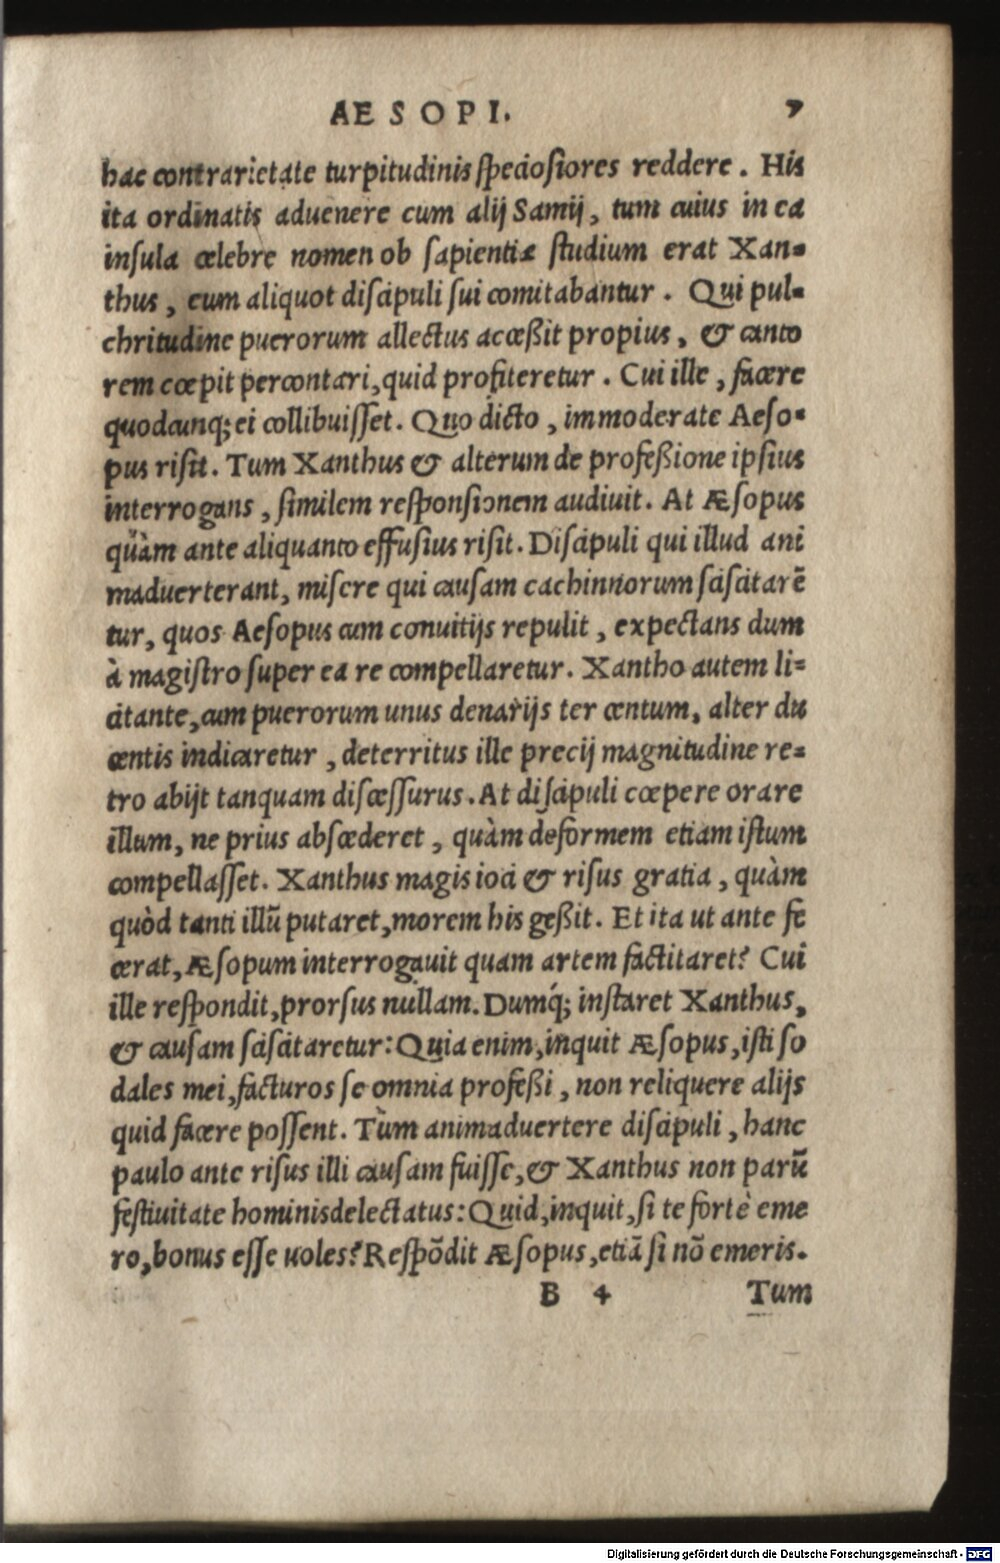 AESOPI. 7
hac contrarietate turpitudinis speciosiores reddere. His
ita ordinatis aduenere cum alij Samij, tum cuius in ea
insula celebre nomen ob sapientiæ studium erat Xan-
thus, eum aliquot discipuli sui comitabantur. Qui pul-
chritudine puerorum allectus acceßit propius, & canto
rem cœpit percontari, quid profiteretur. Cui ille, facere
quodcunq; ei collibuisset. Quo dicto, immoderate Aeso-
pus risit. Tum Xanthus & alterum de profeßione ipsius
interrogans, similem responsionem audiuit. At Æsopus
quàm ante aliquanto effusius risit. Discipuli qui illud ani
maduerterant, misere qui causam cachinnorum sciscitarē
tur, quos Aesopus cum conuitijs repulit, expectans dum
à magistro super ea re compellaretur. Xantho autem li-
citante, cum puerorum unus denarijs ter centum, alter du
centis indicaretur, deterritus ille precij magnitudine re-
tro abijt tanquam discessurus. At discipuli cœpere orare
illum, ne prius abscederet, quàm deformem etiam istum
compellasset. Xanthus magis ioci & risus gratia, quàm
quòd tanti illū putaret, morem his geßit. Et ita ut ante fe
cerat, Æsopum interrogauit quam artem factitaret? Cui
ille respondit, prorsus nullam. Dumq́; instaret Xanthus,
& causam sciscitaretur: Quia enim, inquit Æsopus, isti so
dales mei, facturos se omnia profeßi, non reliquere alijs
quid facere possent. Tùm animaduertere discipuli, hanc
paulo ante risus illi causam fuisse, & Xanthus non parū
festiuitate hominis delectatus: Quid, inquit, si te fortè eme
ro, bonus esse uoles? Respōdit Æsopus, etiā si nō emeris.
B 4 Tum
Digitalisierung gefördert durch die Deutsche Forschungsgemeinschaft - DFG